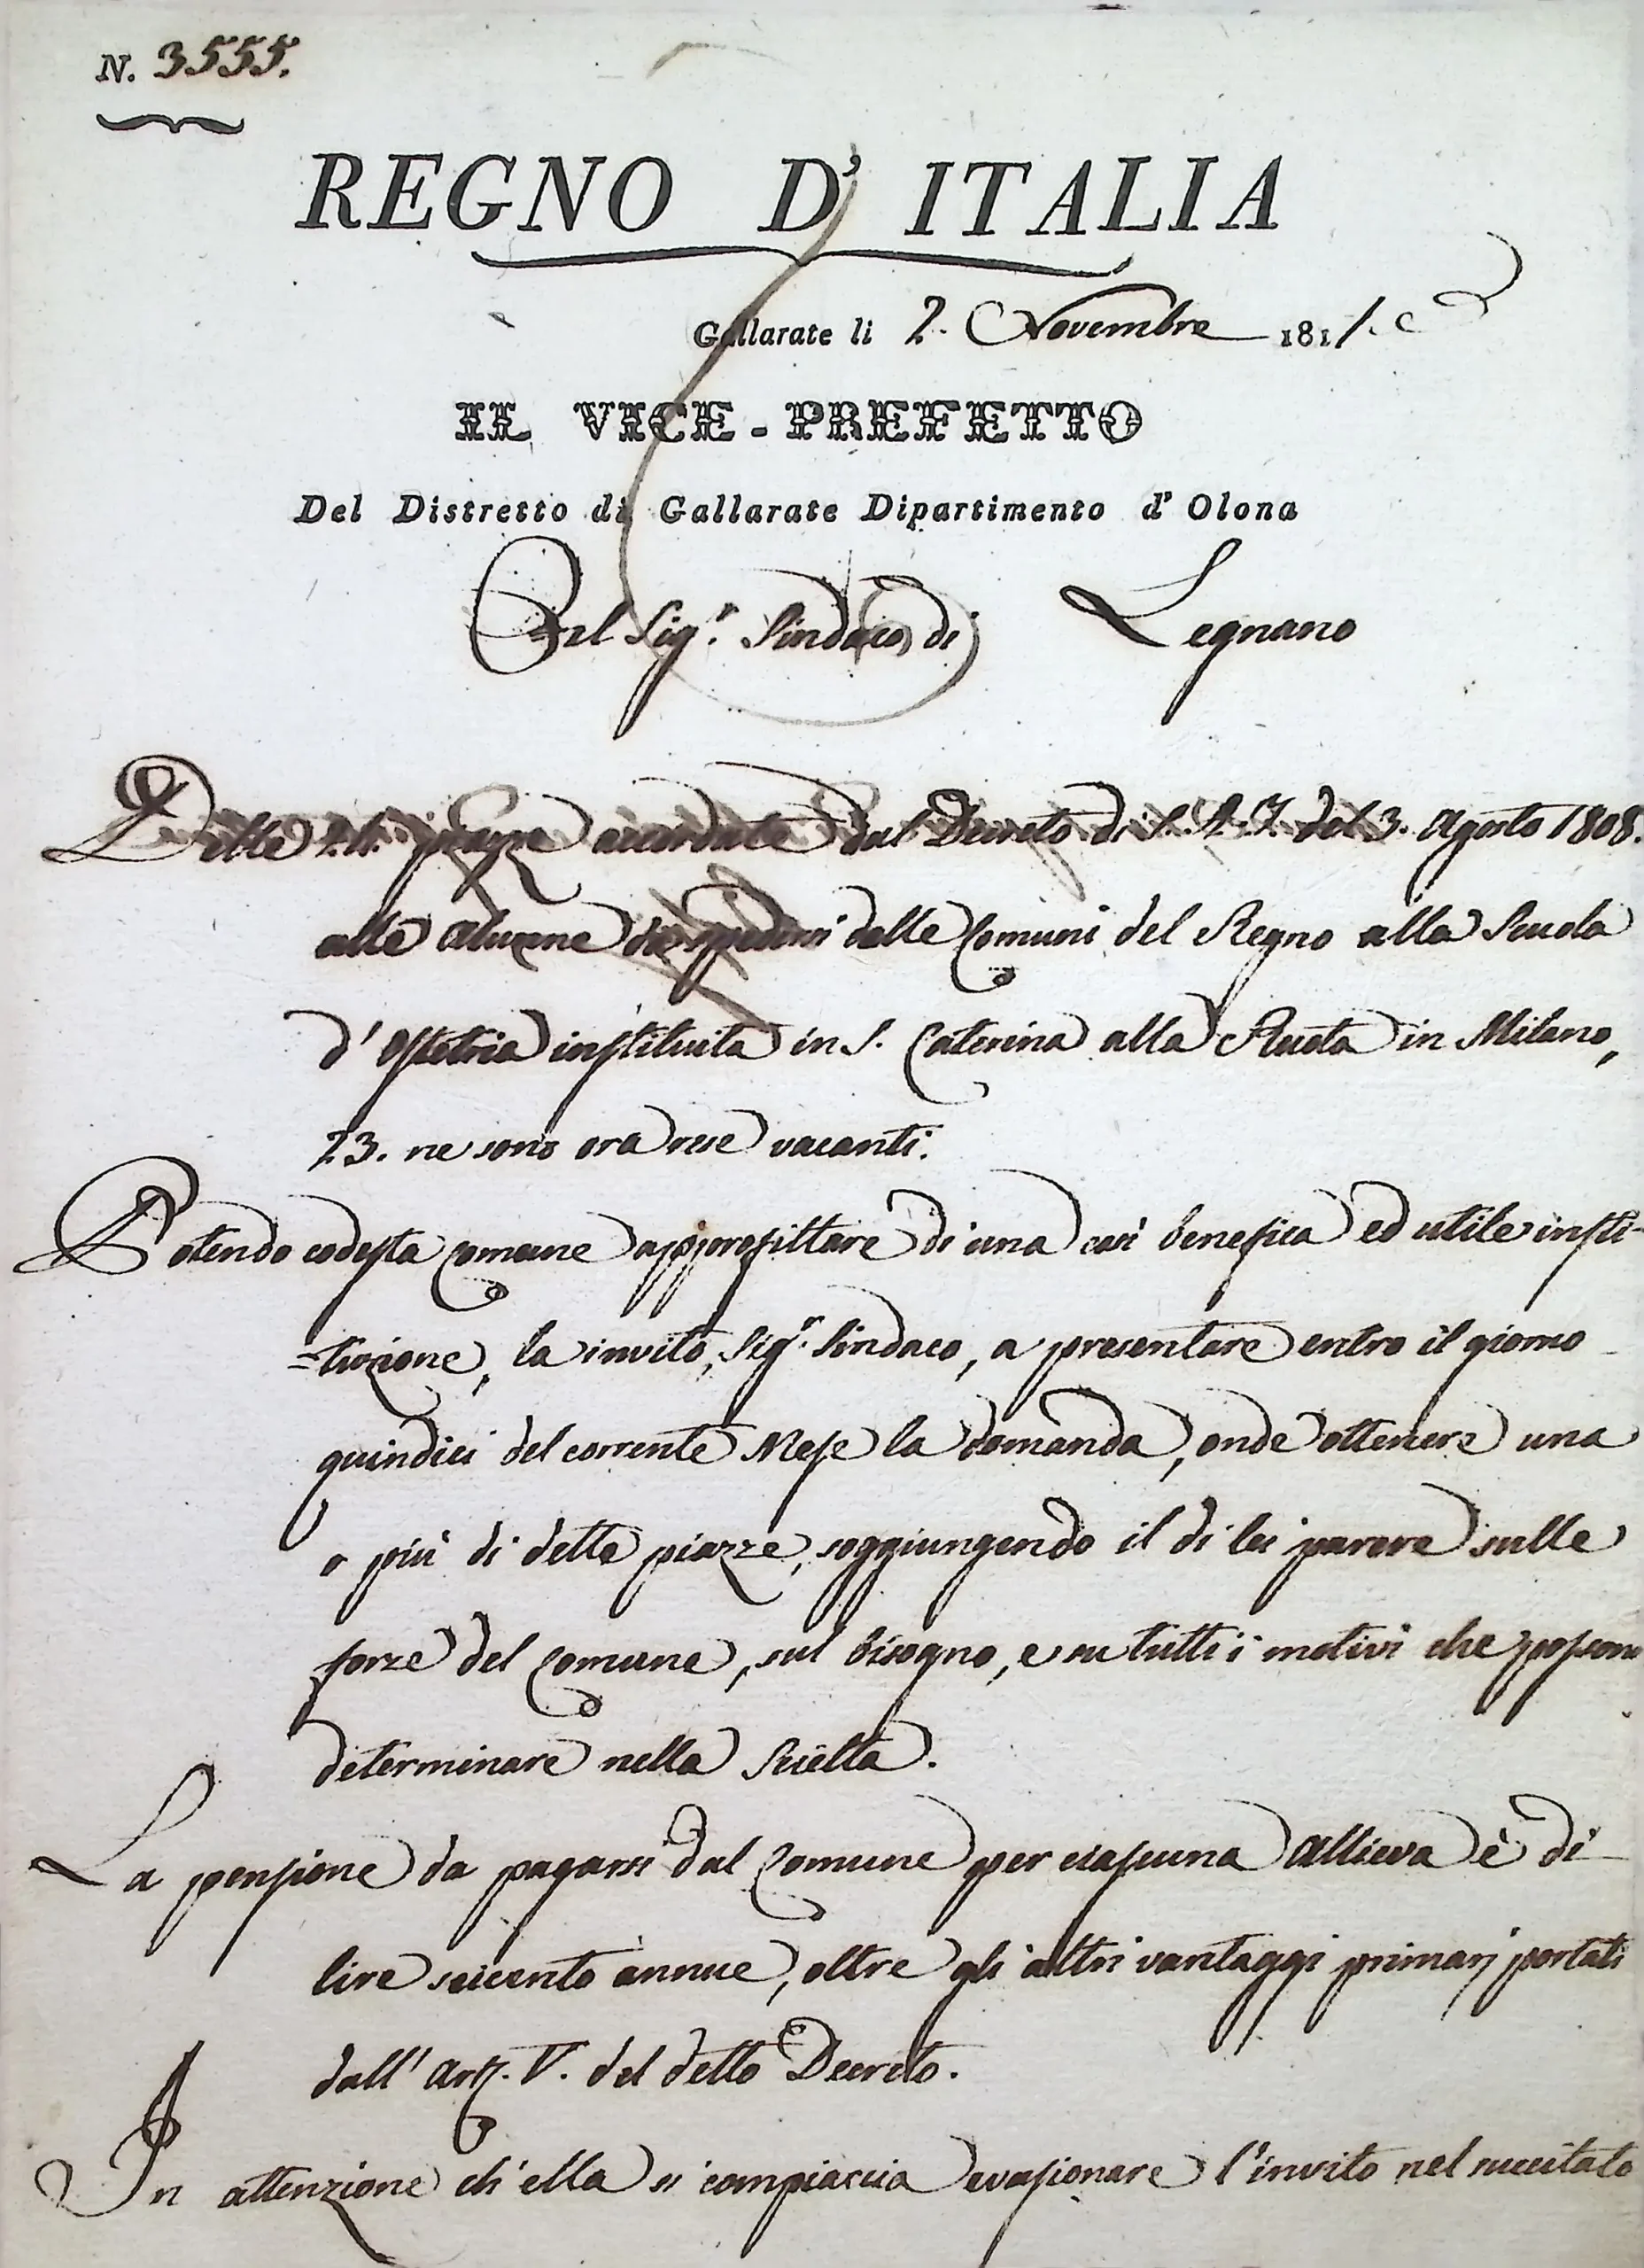 N. 3555.
REGNO D' ITALIA
Gallarate li 2. Novembre 1811.
IL VICE-PREFETTO
Del Distretto di Gallarate Dipartimento d' Olona
Sig.r Sindaco di Legnano
Delle piazze accordate dal Decreto di S. A. I. del 3. Agosto 1808.
alle Alunne da spedirsi dalle Comuni del Regno alla Scuola
d'Ostetricia instituita in S. Caterina alla Ruota in Milano,
23. ne sono ora rese vacanti.
Potendo codesta Comune approfittare di una così benefica ed utile insti-
=tuzione, la invito, Sig.r Sindaco, a presentare entro il giorno
quindici del corrente Mese la domanda, onde ottenere una
o più di dette piazze, soggiungendo il di lei parere sulle
forze del Comune, sul bisogno, e su tutti i motivi che possono
determinare nella Scielta.
La pensione da pagarsi dal Comune per ciascuna Allieva è di
lire seicento annue, oltre gli altri vantaggi primarj portati
dall' Art. V. del detto Decreto.
In attenzione ch'ella si compiaccia evasionare l'invito nel succitato